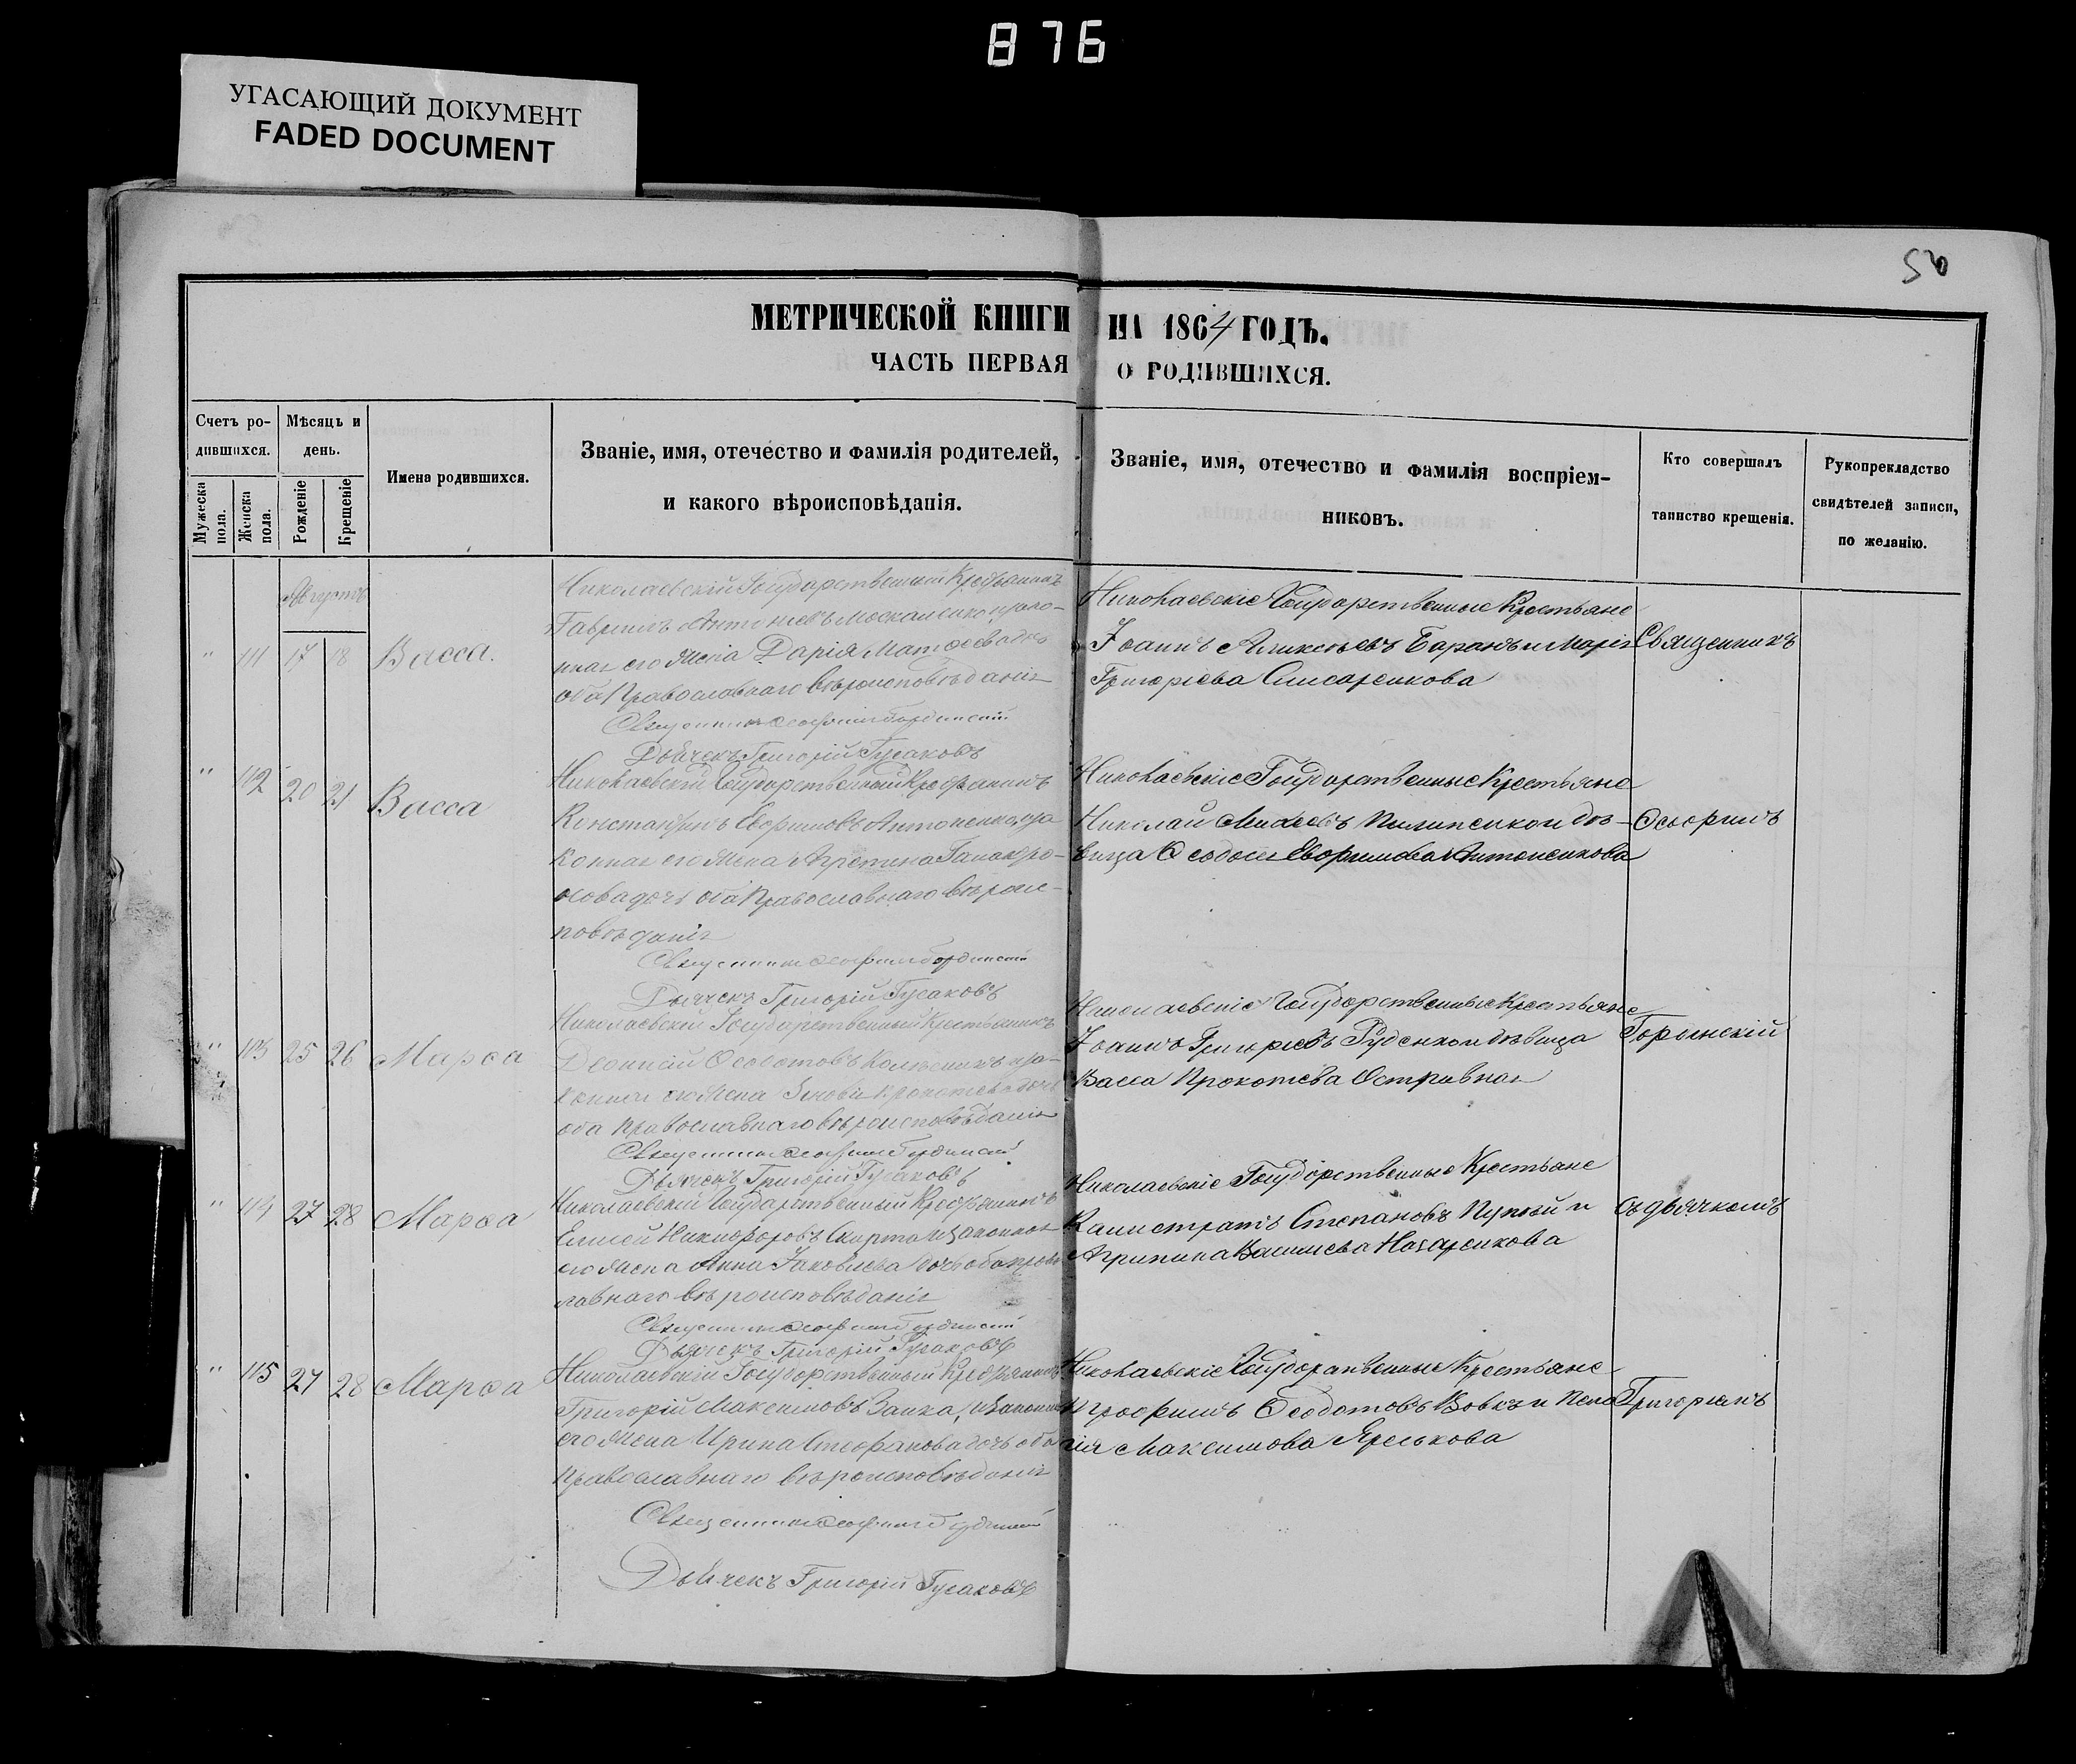 876
УГАСАЮЩИЙ ДОКУМЕНТ
FADED DOCUMENT
50
МЕТРИЧЕСКОЙ КНИГИ НА 1864 ГОДЪ.
ЧАСТЬ ПЕРВАЯ О РОДИВШИХСЯ.
Счетъ ро-
дившихся.
Мужеска пола.
Женска пола.
Мѣсяцъ и
день.
Рожденіе
Крещеніе
Имена родившихся.
Званіе, имя, отечество и фамилія родителей,
и какого вѣроисповѣданія.
Званіе, имя, отечество и фамилія воспріем-
никовъ.
Кто совершалъ
таинство крещенія.
Рукоприкладство
свидѣтелей записи,
по желанію.
Августъ
" 111 17 18 Васса.
Николаевскій Государственный Крестьянинъ
Гавріилъ Антоніевъ Москаленко и зако-
нная его жена Дарія Матѳеева дочь
оба Православнаго вѣроисповѣданія
Священникъ
Дьячекъ Григорій Гусаковъ
Николаевскіе Государственные Крестьяне
Іоаннъ Аликсѣевъ Баранъ и Марія
Григоріева Слисаренкова
Священникъ
" 112 20 21 Васса
Николаевскій Государственный Крестьянинъ
Константинъ Евфимовъ Антоненко, и за
конная его жена
дочь оба Православнаго вѣроис-
повѣданія
Священникъ
Дьячекъ Григорій Гусаковъ
Николаевскіе Государственные Крестьяне
Николай Пилипенко и дѣ-
вица Ѳеодосія Евфимова Антоненкова
" 113 25 26 Марѳа
Николаевскій Государственный Крестьянинъ
Діонисій Ѳеодотовъ Колѣсникъ и за-
конная его жена дочь
оба Православнаго вѣроисповѣданія
Священникъ
Дьячекъ Григорій Гусаковъ
Николаевскіе Государственные Крестьяне
Іоаннъ Григоріевъ Руденко и дѣвица
Васса Прокопіева Остривная
" 114 27 28 Марѳа
Николаевскій Государственный Крестьянинъ
Елисей Никифоровъ и законная
его жена Анна Іаковлева дочь оба право
славнаго вѣроисповѣданія
Священникъ
Дьячекъ Григорій Гусаковъ
Николаевскіе Государственные Крестьяне
Калистратъ Степановъ и
Агрипина Василіева Назаренкова
съ дьячкомъ
" 115 27 28 Марѳа
Николаевскій Государственный Крестьянинъ
Григорій Максимовъ Заика, и законная
его жена Ирина Стефанова дочь оба
Православнаго вѣроисповѣданія
Священникъ
Дьячекъ Григорій Гусаковъ
Николаевскіе Государственные Крестьяне
Трофимъ Ѳеодотовъ Вовкъ и Пела
гія Максимова
Григоріемъ